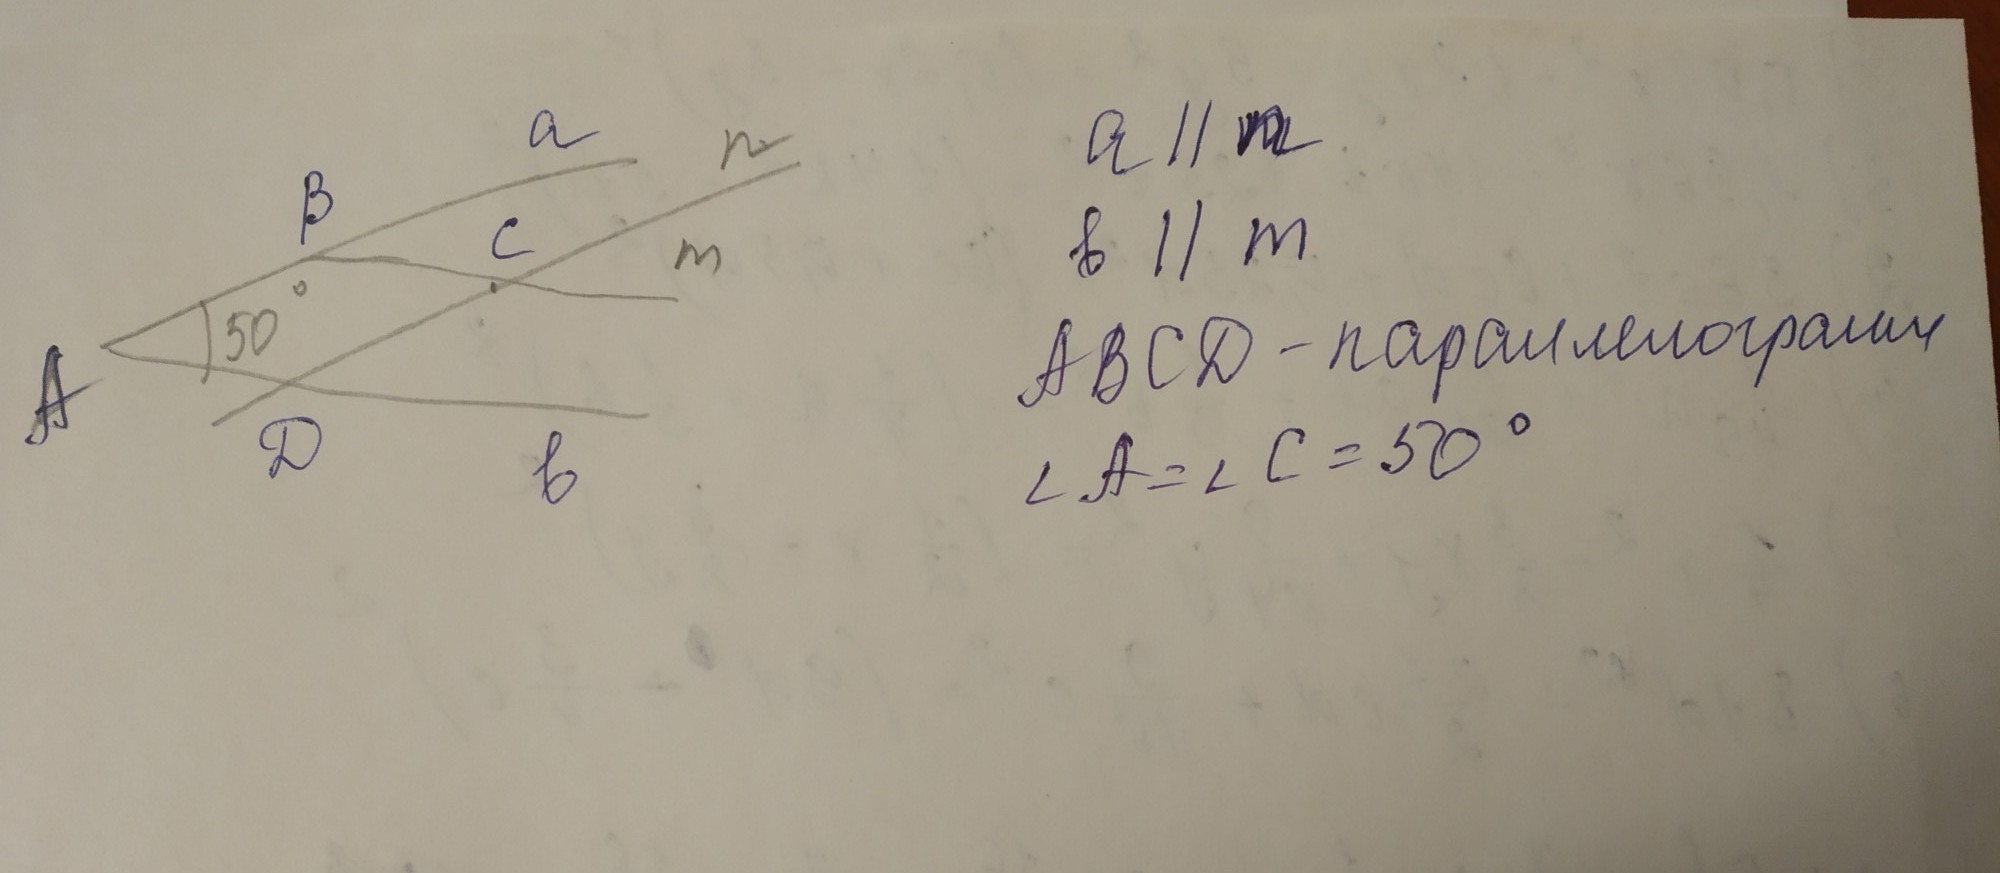 a
n
B
C
m
50°
A
D
b
a || n
b || m
ABCD - параллелограмм
∠A = ∠C = 50°